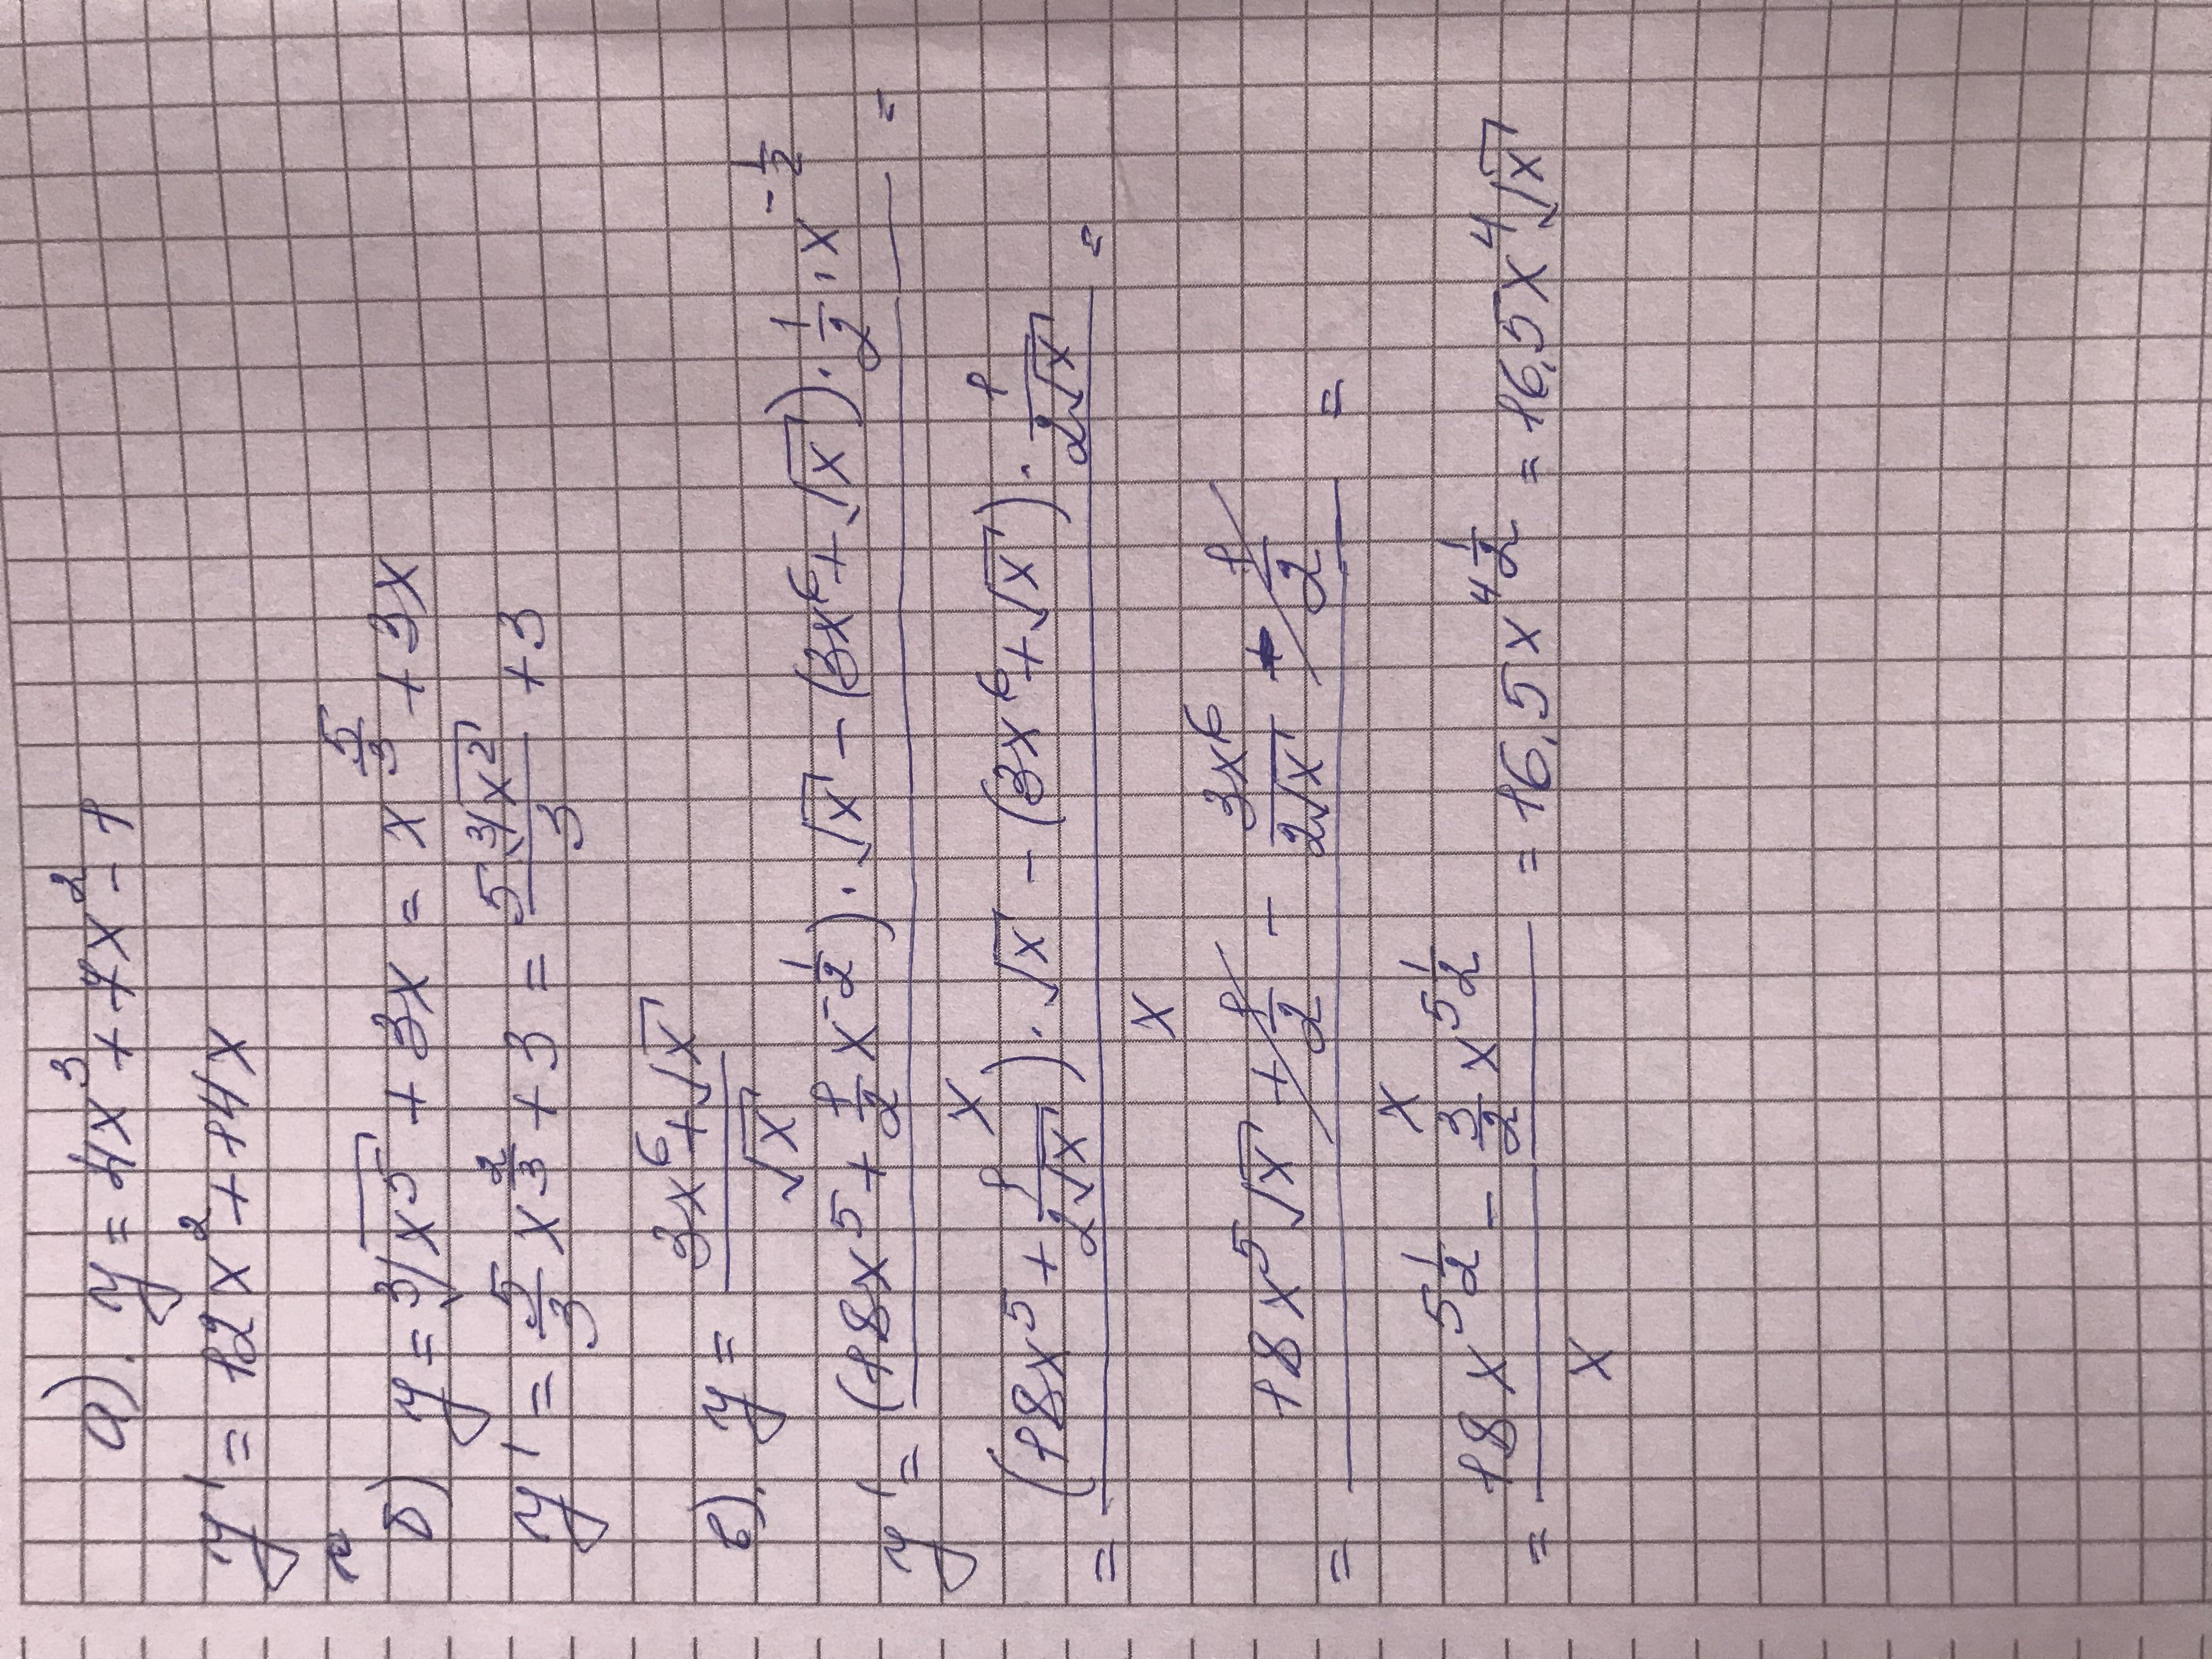 а). y = 4x³ + 7x² - 1
y' = 12x² + 14x
б) y = ³√x⁵ + 3x = x^(5/3) + 3x
y' = 5/3 x^(2/3) + 3 = (5 ³√x²)/3 + 3
в). y = (3x⁶ + √x)/√x
y' = ((18x⁵ + 1/2 x^(-1/2)) · √x - (3x⁶ + √x) · 1/2 · x^(-1/2))/x =
= ((18x⁵ + 1/(2√x)) · √x - (3x⁶ + √x) · 1/(2√x))/x =
= (18x⁵√x + 1/2 - 3x⁶/(2√x) - 1/2)/x =
= (18x^(5 1/2) - 3/2 x^(5 1/2))/x = 16,5x^(4 1/2) = 16,5x⁴√x